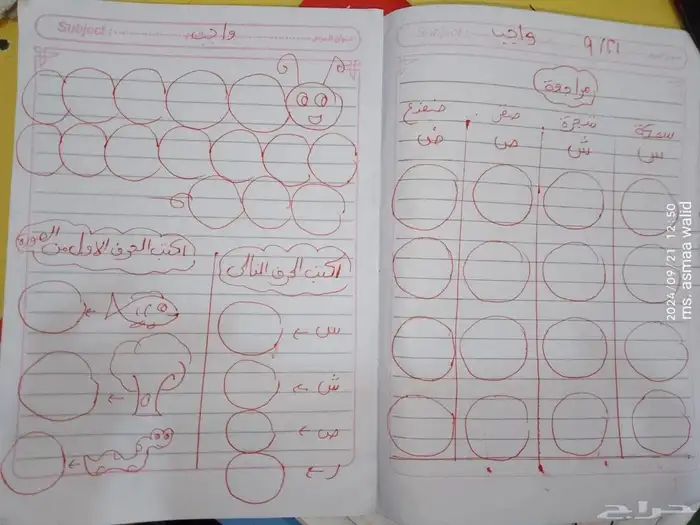 واجب
٩/٢١
مراجعة
سمكة شجرة صقر ضفدع
س ش ص ض
Subject: واجب
اكتب الحرف الأول من الصورة
اكتب الحرف التالي
س ←
ش ←
ص ←
ر ←
2024/09/21 12:50
ms. asmaa walid
حراج